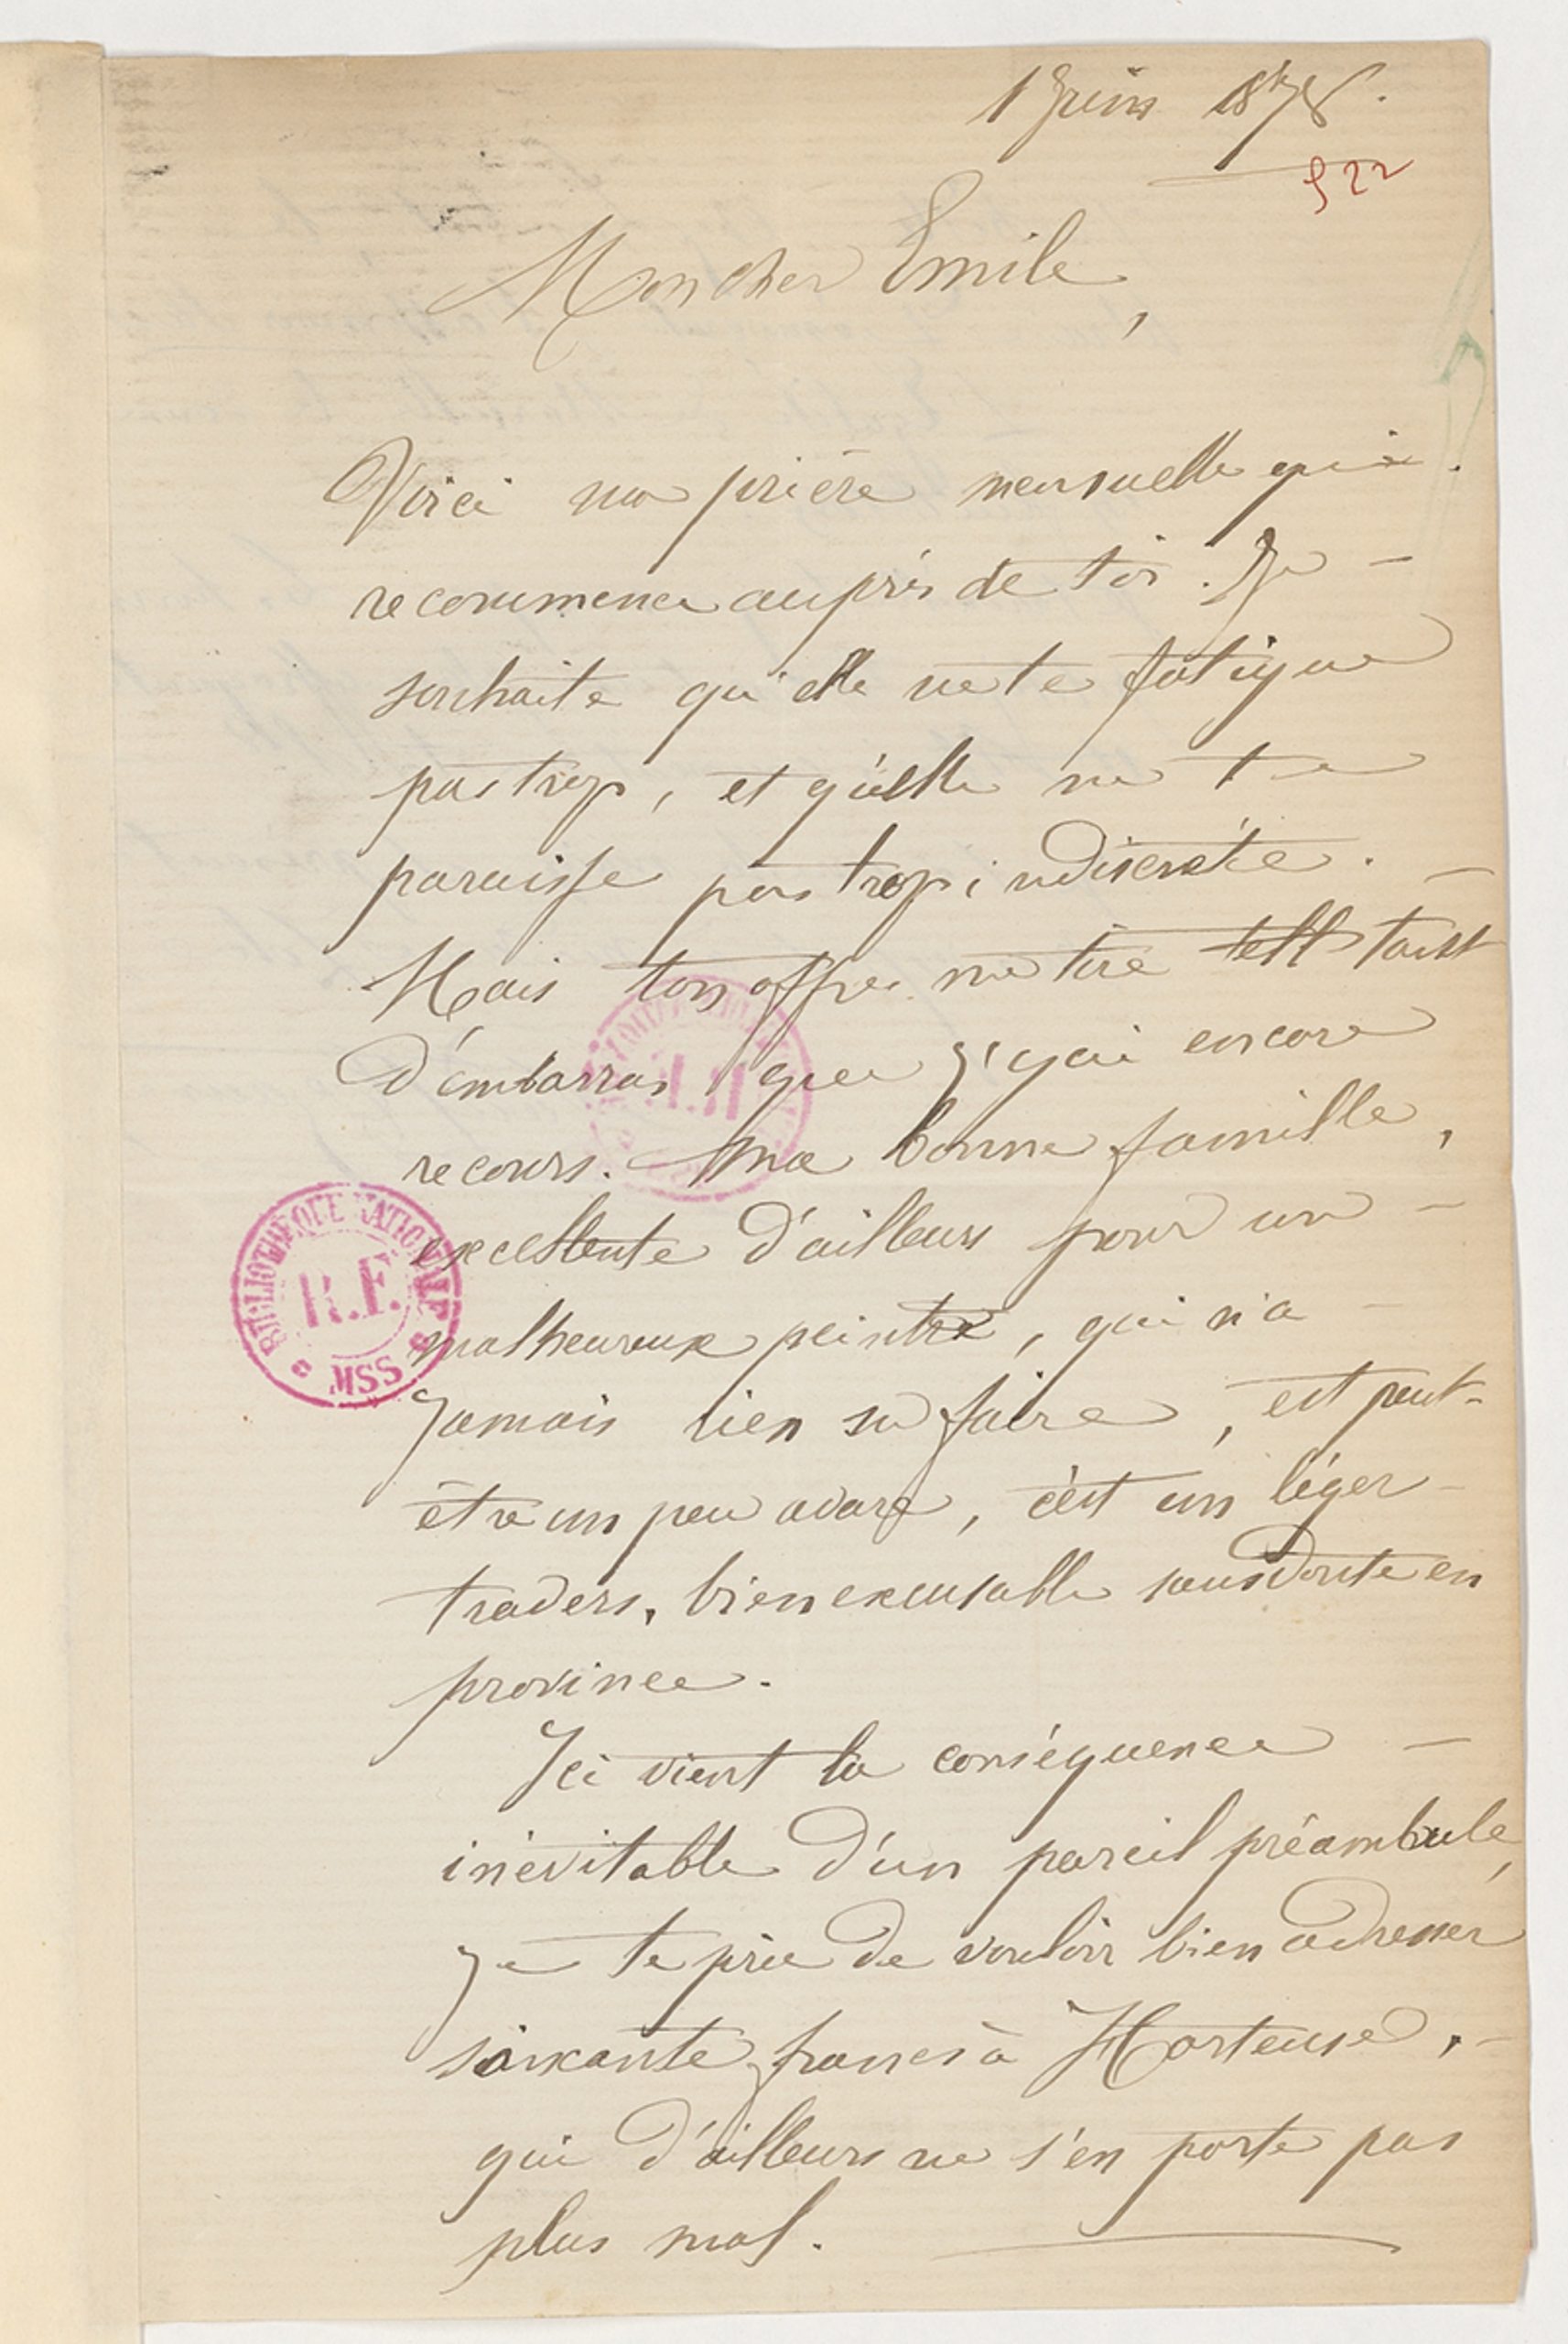 1 Juin 1878.
522
Mon cher Emile,
Voici ma prière mensuelle qui
recommence auprès de toi. Je —
souhaite qu'elle ne te fatigue
pas trop, et qu'elle ne te
paraisse pas trop indiscrète. —
Mais ton offre me tire tell tant
d'embarras que j'y ai encore
recours. Ma bonne famille,
excellente d'ailleurs pour un —
malheureux peintre, qui n'a —
jamais rien su faire, est peut-
être un peu avare, c'est un léger —
travers, bien excusable sans doute en
province.
Ici vient la conséquence —
inévitable d'un pareil préambule,
je te prie de vouloir bien adresser
soixante francs à Hortense, —
qui d'ailleurs ne s'en porte pas
plus mal. —
BIBLIOTHÈQUE NATIONALE
R.F.
MSS